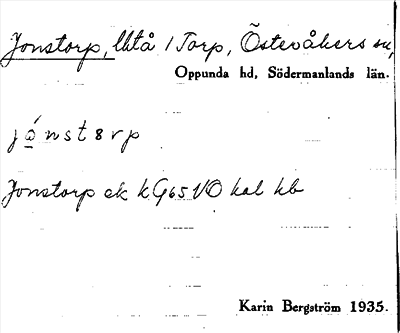 Jonstorp, lht å 1 Torp, Österåkers sn,
Oppunda hd, Södermanlands län.
jónst8rp
Jonstorp ek kG65VO kal kb
Karin Bergström 1935.